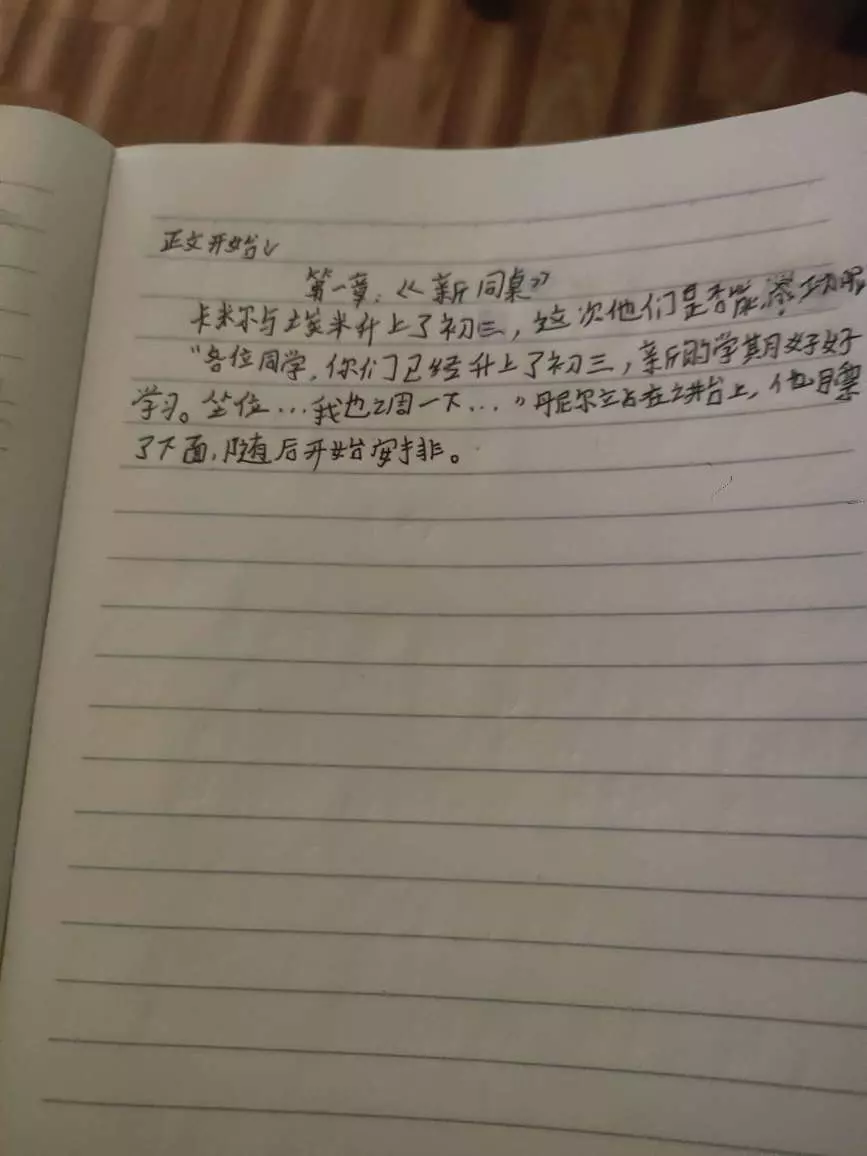 正文开始↓
第一章:《新同桌》
卡米尔与埃米升上了初三,这次他们是否能
"各位同学,你们已经升上了初三,新的学期好好
学习。坐位…我也调一下…"丹尼尔站在讲台上,他
了下面,随后开始安排。